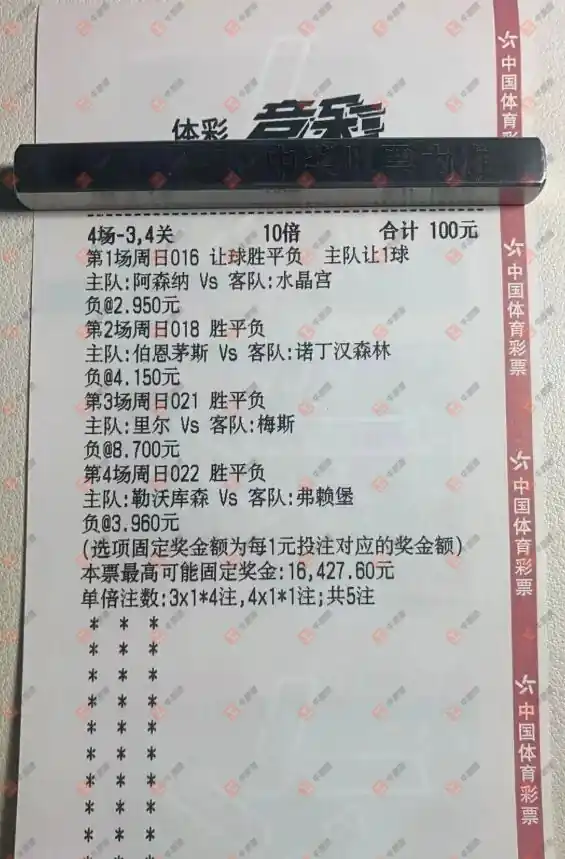 体彩 竞彩
4场-3,4关 10倍 合计 100元
第1场周日016 让球胜平负 主队让1球
主队:阿森纳 Vs 客队:水晶宫
负@2.950元
第2场周日018 胜平负
主队:伯恩茅斯 Vs 客队:诺丁汉森林
负@4.150元
第3场周日021 胜平负
主队:里尔 Vs 客队:梅斯
负@8.700元
第4场周日022 胜平负
主队:勒沃库森 Vs 客队:弗赖堡
负@3.960元
(选项固定奖金额为每1元投注对应的奖金额)
本票最高可能固定奖金:16,427.60元
单倍注数:3x1*4注,4x1*1注;共5注
* * *
* * *
* * *
* * *
* * *
* * *
* * *
* * *
* * *
* * *
中国体育彩
中国体育彩票
中国体育彩票
中国体育彩票